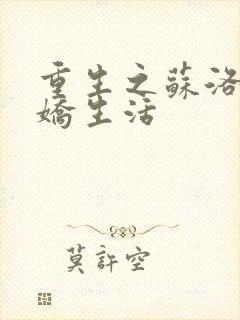 重生之蘇洛
嬌生活
莫許空